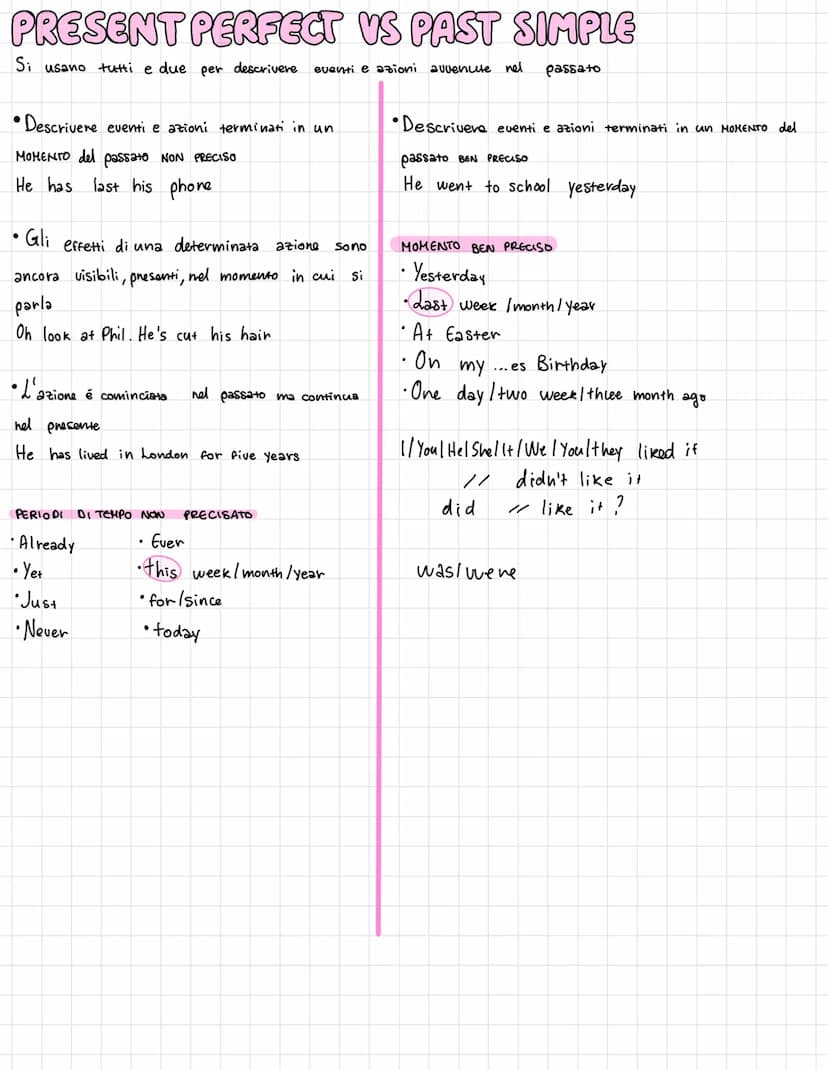 PRESENT PERFECT VS PAST SIMPLE
Si usano tutti e due per descrivere eventi e azioni avvenute nel passato
• Descrivere eventi e azioni terminati in un
MOMENTO del passato NON PRECISO
He has last his phone
• Gli effetti di una determinata azione sono
ancora visibili, presenti, nel momento in cui si
parla
Oh look at Phil. He's cut his hair
• L'azione é cominciata nel passato ma continua
nel presente
He has lived in London for five years
PERIODI DI TEMPO NON PRECISATO
• Already
• Yet
• Just
• Never
• Ever
• this week/month/year
• for/since
• today
• Descrivere eventi e azioni terminati in un MOMENTO del
passato BEN PRECISO
He went to school yesterday
MOMENTO BEN PRECISO
• Yesterday
• Last week /month/year
• At Easter
• On my ...es Birthday
• One day/two week/three month ago
I/You/He/She/It/We/You/they liked it
// didn't like it
did // like it?
was/were